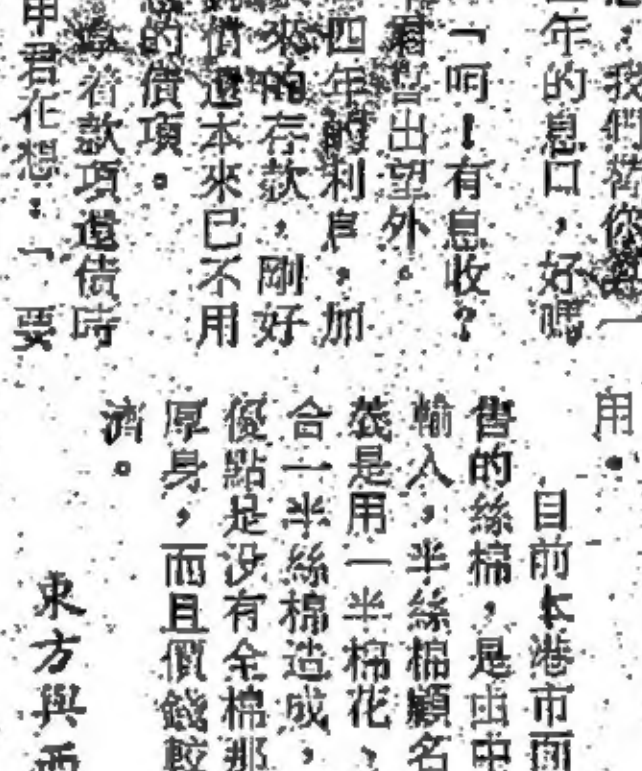 我們當你
年的息口，好嗎
「呵！有息收？
君喜出望外。
四年的利息，加
來的存款，剛好
債還本來已不用
的債項。
拿着款項還債時
甲君在想：「要
用。
目前本港市面
售的絲棉，是由中
輸入，半絲棉顧名
義是用一半棉花、
合一半絲棉造成，
優點是沒有全棉那
厚身，而且價錢較
濟。
東方與西